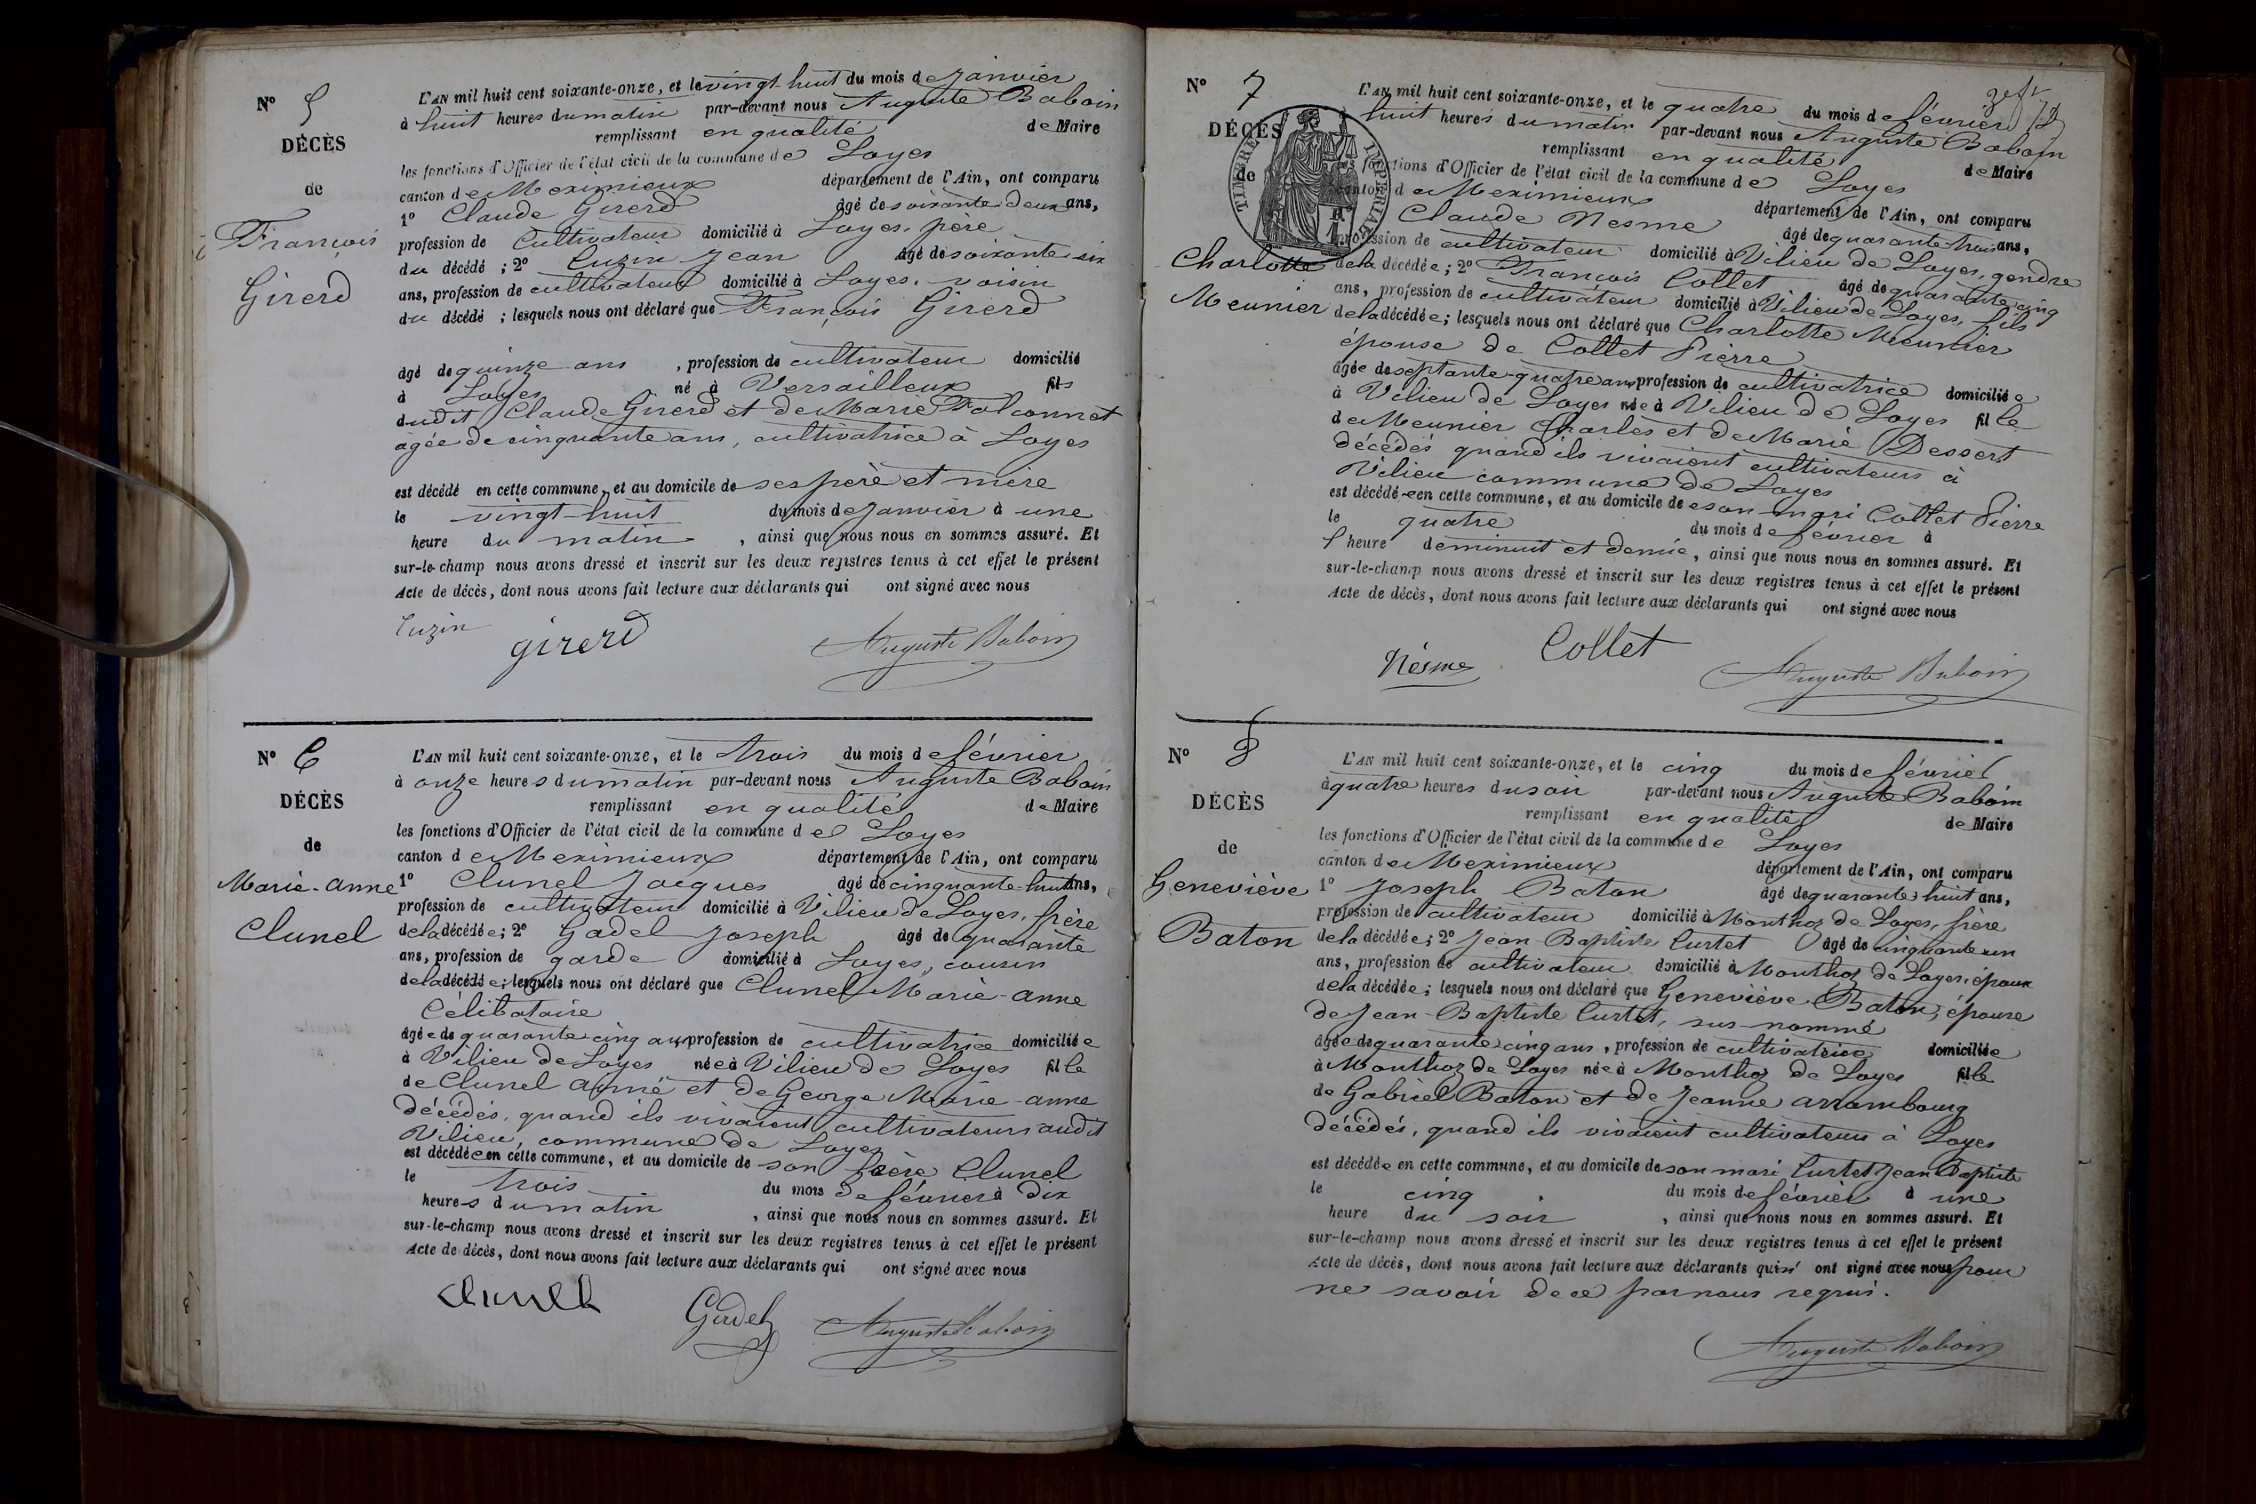 N° 5
DÉCÈS
de
François
Girerd
L'AN mil huit cent soixante-onze, et le vingt huit du mois de Janvier
à huit heures du matin par-devant nous Auguste Baboin
remplissant en qualité de Maire
les fonctions d'Officier de l'état civil de la commune de Loyes
canton de Meximieux département de l'Ain, ont comparu
1° Claude Girerd âgé de soixante deux ans,
profession de Cultivateur domicilié à Loyes, père
du décédé ; 2° Cuzin Jean âgé de soixante six
ans, profession de cultivateur domicilié à Loyes, voisin
du décédé ; lesquels nous ont déclaré que François Girerd
âgé de quinze ans , profession de cultivateur domicilié
à Loyes né à Versailleux fils
dudit Claude Girerd et de Marie Falconnet
agée de cinquante ans, cultivatrice à Loyes
est décédé en cette commune, et au domicile de ses père et mère
le vingt-huit du mois de Janvier à une
heure du matin , ainsi que nous nous en sommes assuré. Et
sur-le-champ nous avons dressé et inscrit sur les deux registres tenus à cet effet le présent
Acte de décès, dont nous avons fait lecture aux déclarants qui ont signé avec nous
Cuzin girerd Auguste Baboin
N° 6
DÉCÈS
de
Marie-anne
Clunel
L'AN mil huit cent soixante-onze, et le trois du mois de février
à onze heures du matin par-devant nous Auguste Baboin
remplissant en qualité de Maire
les fonctions d'Officier de l'état civil de la commune de Loyes
canton de Meximieux département de l'Ain, ont comparu
1° Clunel Jacques âgé de cinquante-huit ans,
profession de cultivateur domicilié à Vilieu de Loyes, frère
de la décédée ; 2° Gadel Joseph âgé de quarante
ans, profession de garde domicilié à Loyes, cousin
de la décédée ; lesquels nous ont déclaré que Clunel Marie-anne
Célibataire
âgée de quarante cinq ans profession de cultivatrice domiciliée
à Vilieu de Loyes née à Vilieu de Loyes fille
de Clunel aimé et de George Marie-anne
décédés, quand ils vivaient cultivateurs audit
Vilieu, commune de Loyes
est décédée en cette commune, et au domicile de son frère Clunel
le trois du mois de février à dix
heures du matin , ainsi que nous nous en sommes assuré. Et
sur-le-champ nous avons dressé et inscrit sur les deux registres tenus à cet effet le présent
Acte de décès, dont nous avons fait lecture aux déclarants qui ont signé avec nous
Clunel Gadel Auguste Baboin
N° 7
DÉCÈS
de
TIMBRE IMPERIAL
Charlotte
Meunier
L'AN mil huit cent soixante-onze, et le quatre du mois de février
huit heures du matin par-devant nous Auguste Baboin
remplissant en qualité de Maire
les fonctions d'Officier de l'état civil de la commune de Loyes
canton de Meximieux département de l'Ain, ont comparu
Claude Nesme âgé de quarante-trois ans,
profession de cultivateur domicilié à Vilieu de Loyes, gendre
de la décédée ; 2° François Collet âgé de quarante cinq
ans, profession de cultivateur domicilié à Vilieu de Loyes, fils
de la décédée ; lesquels nous ont déclaré que Charlotte Meunier
épouse de Collet Pierre
âgée de septante-quatre ans profession de cultivatrice domiciliée
à Vilieu de Loyes née à Vilieu de Loyes fille
de Meunier Charles et de Marie Dessert
décédés quand ils vivaient cultivateurs à
Vilieu commune de Loyes
est décédée en cette commune, et au domicile de son mari Collet Pierre
le quatre du mois de février à
l'heure de minuit et demie, ainsi que nous nous en sommes assuré. Et
sur-le-champ nous avons dressé et inscrit sur les deux registres tenus à cet effet le présent
Acte de décès, dont nous avons fait lecture aux déclarants qui ont signé avec nous
Nésme Collet Auguste Baboin
N° 8
DÉCÈS
de
Geneviève
Baton
L'AN mil huit cent soixante-onze, et le cinq du mois de février
à quatre heures du soir par-devant nous Auguste Baboin
remplissant en qualité de Maire
les fonctions d'Officier de l'état civil de la commune de Loyes
canton de Meximieux département de l'Ain, ont comparu
1° Joseph Baton âgé de quarante-huit ans,
profession de cultivateur domicilié à Monthoz de Loyes, frère
de la décédée ; 2° Jean-Baptiste Curtet âgé de cinquante un
ans, profession de cultivateur domicilié à Monthoz de Loyes, époux
de la décédée ; lesquels nous ont déclaré que Geneviève Baton, épouse
de Jean-Baptiste Curtet, sus-nommé
âgée de quarante cinq ans , profession de cultivatrice domiciliée
à Monthoz de Loyes née à Monthoz de Loyes fille
de Gabriel Baton et de Jeanne arrambourg
décédés, quand ils vivaient cultivateurs à Loyes
est décédée en cette commune, et au domicile de son mari Curtet Jean Baptiste
le cinq du mois de février à une
heure du soir , ainsi que nous nous en sommes assuré. Et
sur-le-champ nous avons dressé et inscrit sur les deux registres tenus à cet effet le présent
Acte de décès, dont nous avons fait lecture aux déclarants qui n' ont signé avec nous pour
ne savoir de ce par nous requis.
Auguste Baboin